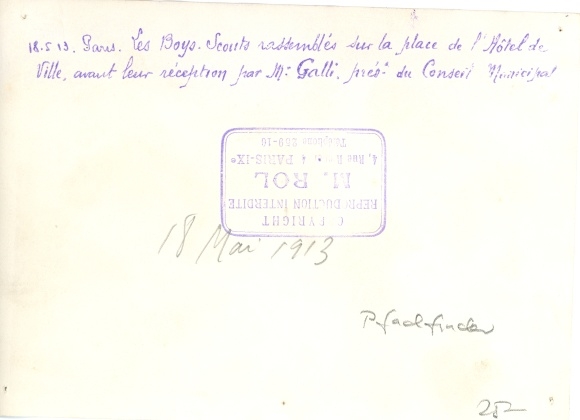 18.5.13. Paris. Les Boys-Scouts rassemblés sur la place de l'Hôtel de
Ville, avant leur réception par Mr Galli, prést du Conseil Municipal
COPYRIGHT
REPRODUCTION INTERDITE
M. ROL
4, Rue 4 PARIS-IXe
Téléphone 259-16
18 Mai 1913
Pfadfinder
25-